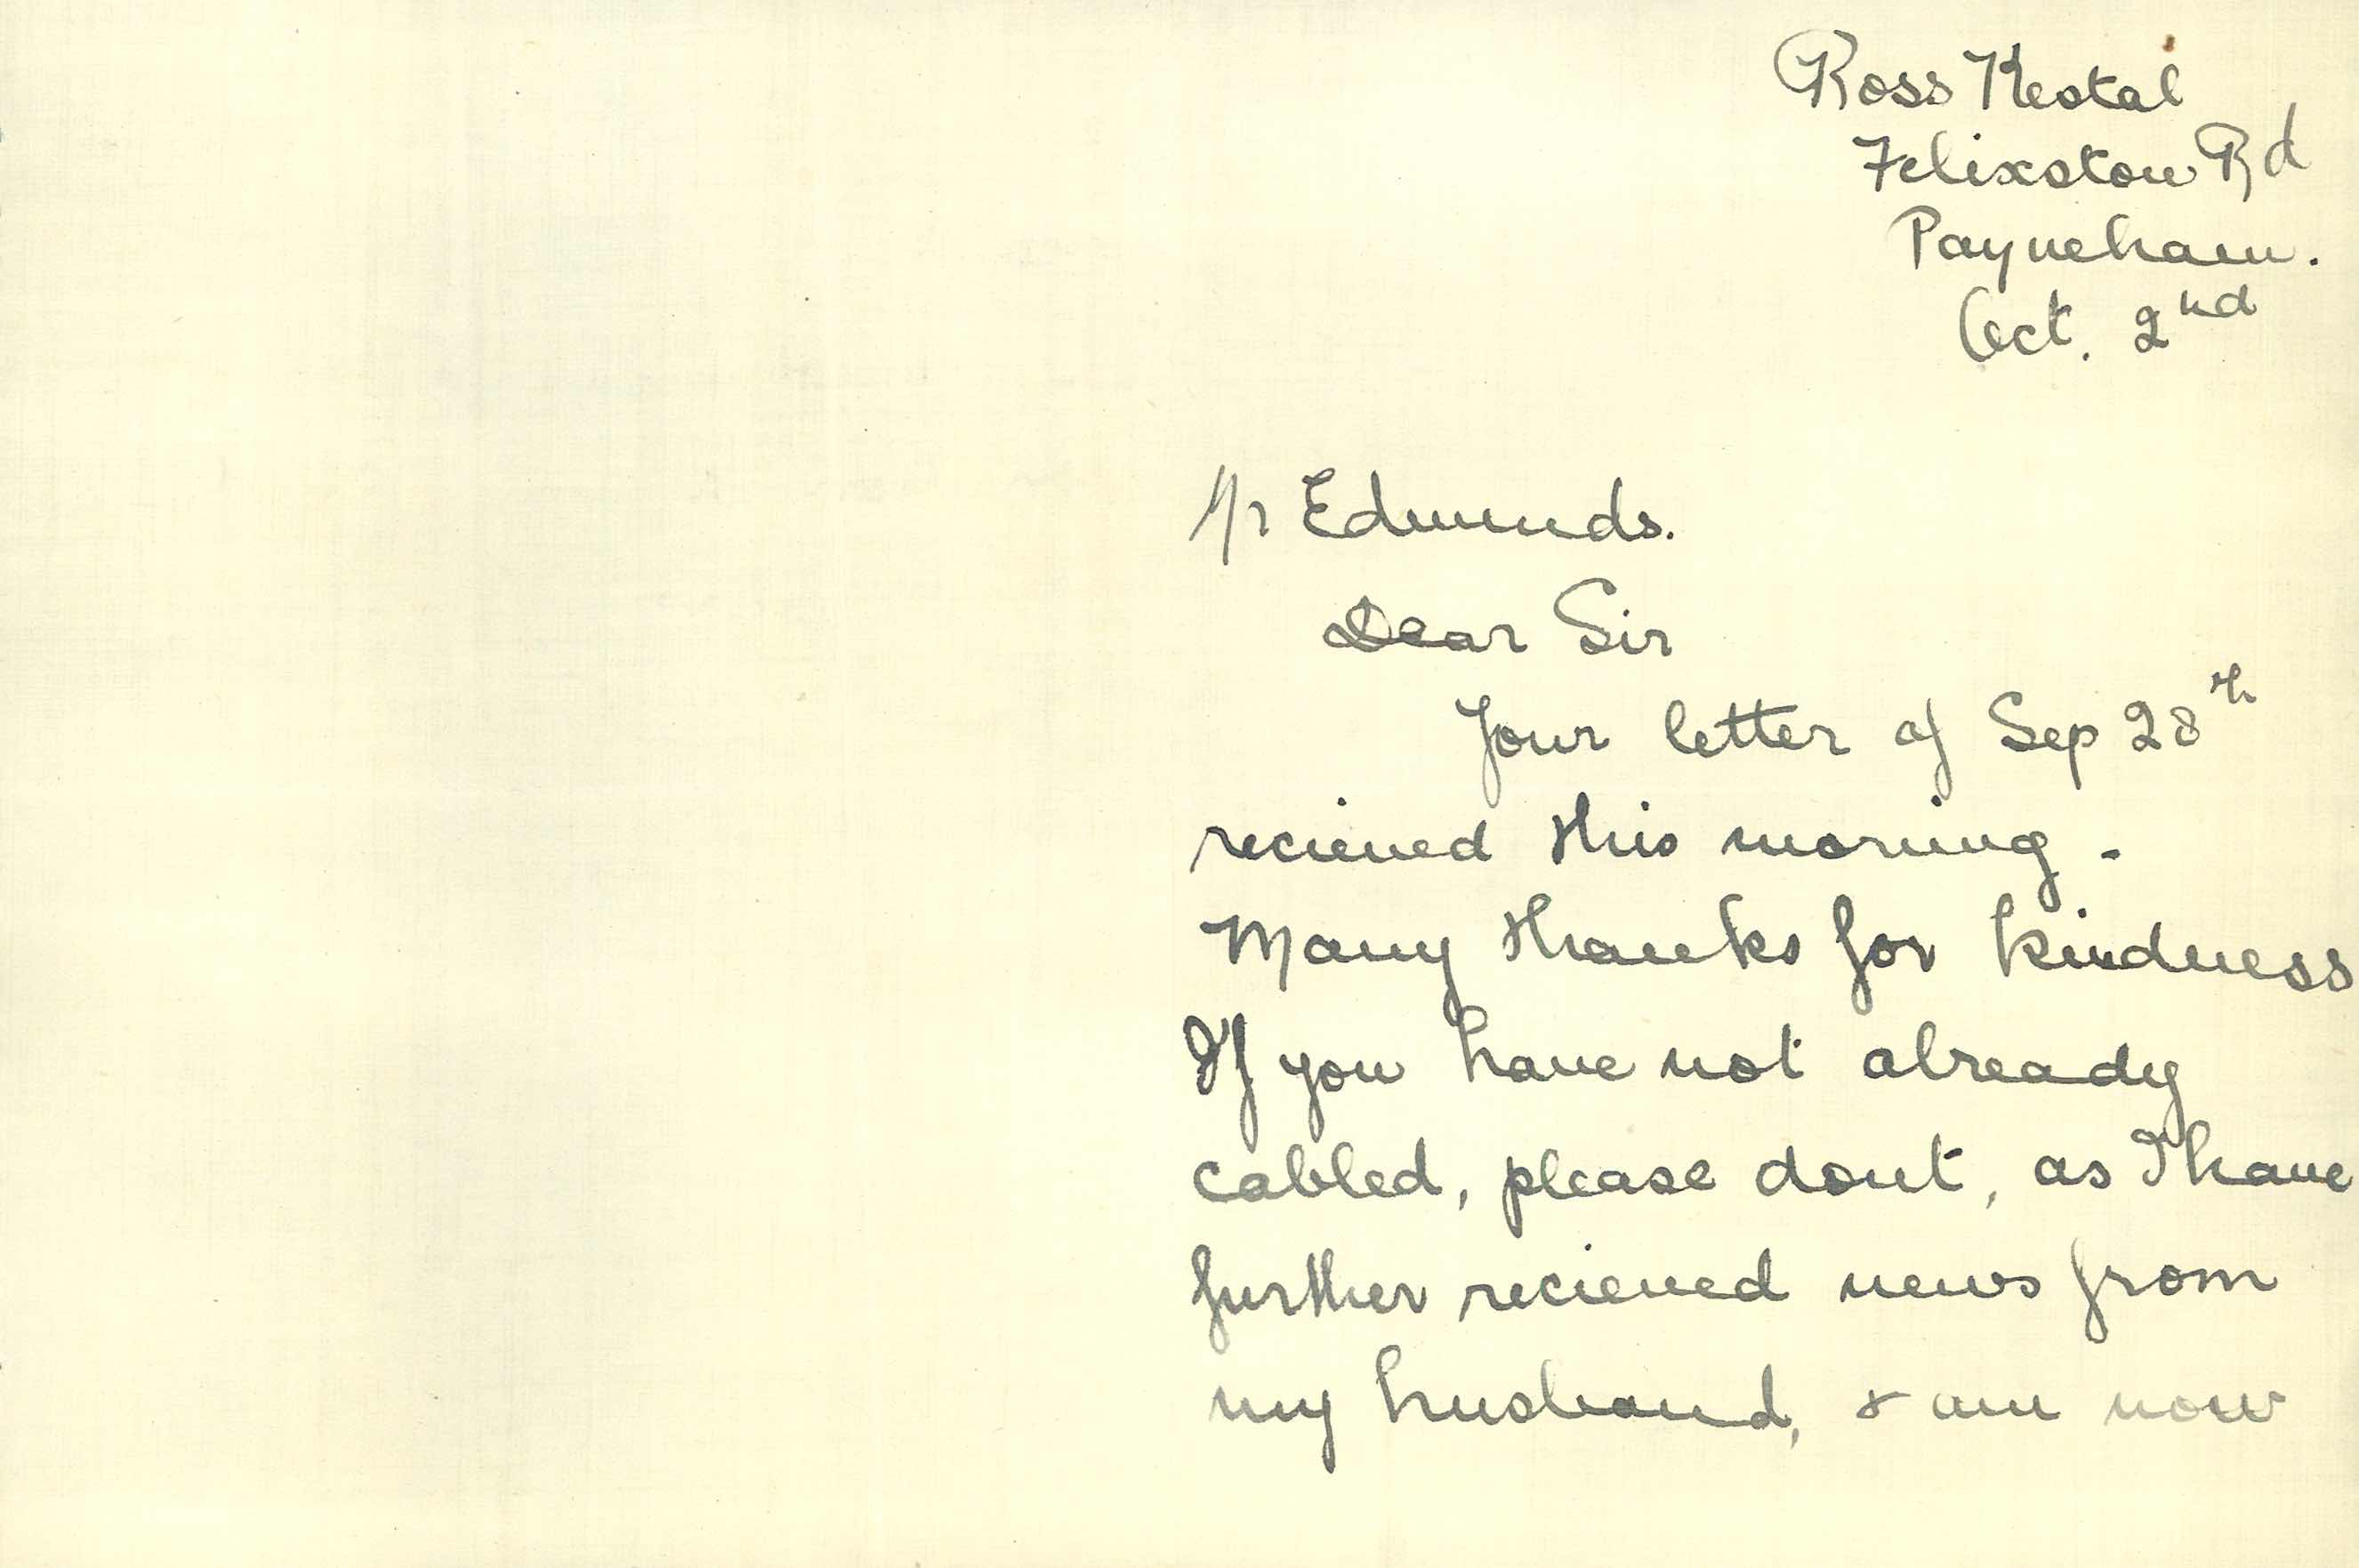 Ross Kestal
Felixstow Rd
Payneham.
Oct. 2nd
Mr Edmunds.
Dear Sir
Your letter of Sep 28th
recieved this morning.
Many thanks for kindness
If you have not already
cabled, please dont, as I have
further recieved news from
my husband, & am now